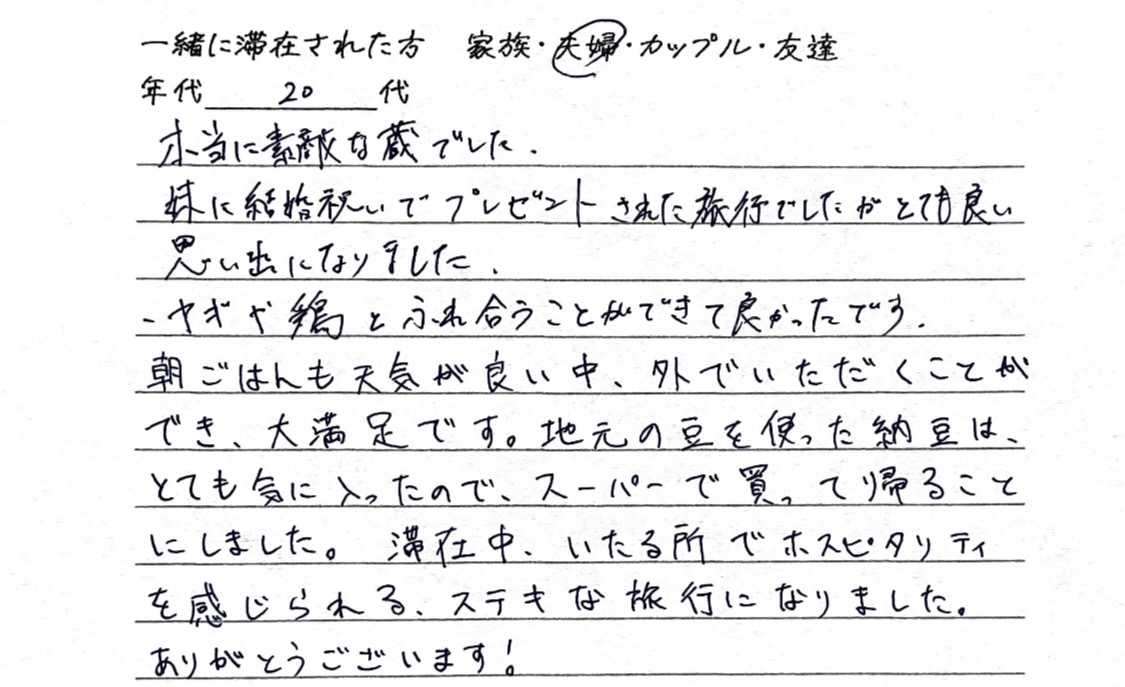 一緒に滞在された方 家族・夫婦・カップル・友達
年代 20 代
本当に素敵な蔵でした.
妹に結婚祝いでプレゼントされた旅行でしたがとても良い
思い出になりました.
・ヤギや鶏とふれ合うことができて良かったです.
朝ごはんも天気が良い中、外でいただくことが
でき、大満足です。地元の豆を使った納豆は、
とても気に入ったので、スーパーで買って帰ること
にしました。 滞在中、いたる所でホスピタリティ
を感じられる、ステキな旅行になりました。
ありがとうございます!